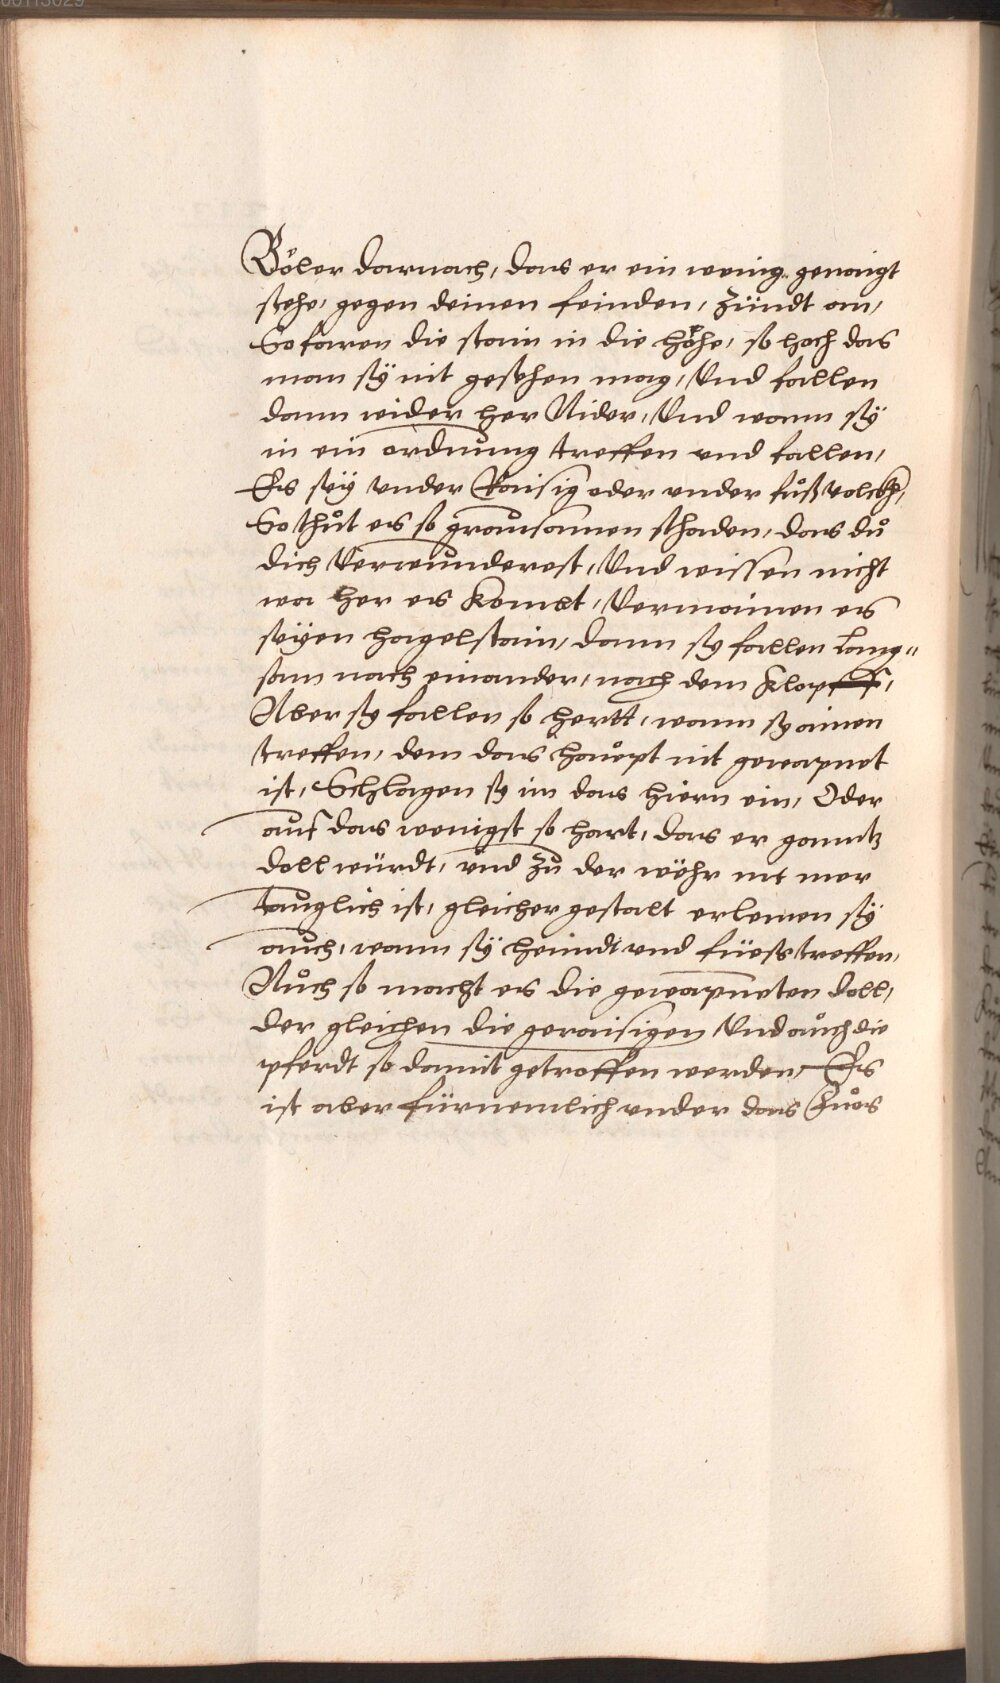 Böler darnach, das er ein wenig genaigt
stehe, gegen deinen feinden, zündt an,
So faren die stain in die höhe, so hoch das
man sÿ nit gesehen mag, Vnd fallen
dann wider her Nider, Vnd wann sÿ
in ein ordnung treffen vnd fallen,
Es seÿ vnder Raisig oder vnder fůß volckh,
So thůt es so grausamen schaden, das dů
dich Verwunderest, Vnd wissen nicht
wa her es kombt, Vermainen es
seÿen hagelstain, dann sy fallen lang"
sam nach einander, nach dem Klapff,
Aber sy fallen so hertt, wann sy ainen
treffen, dem das haůpt nit gewapnet
ist, Schlagen sy im das hiern ein, Oder
auf das wenigst so hart, das er ganntz
doll würdt, vnd zů der wöhr nit mer
tauglich ist, gleicher gestalt erlemen sÿ
auch, wann sÿ henndt vnd füess treffen,
Auch so macht es die gewapneten doll,
der gleichen die geraisigen Vnd auch die
pferdt so damit getroffen werden, Es
ist aber fürnemlich vnder das Fuos